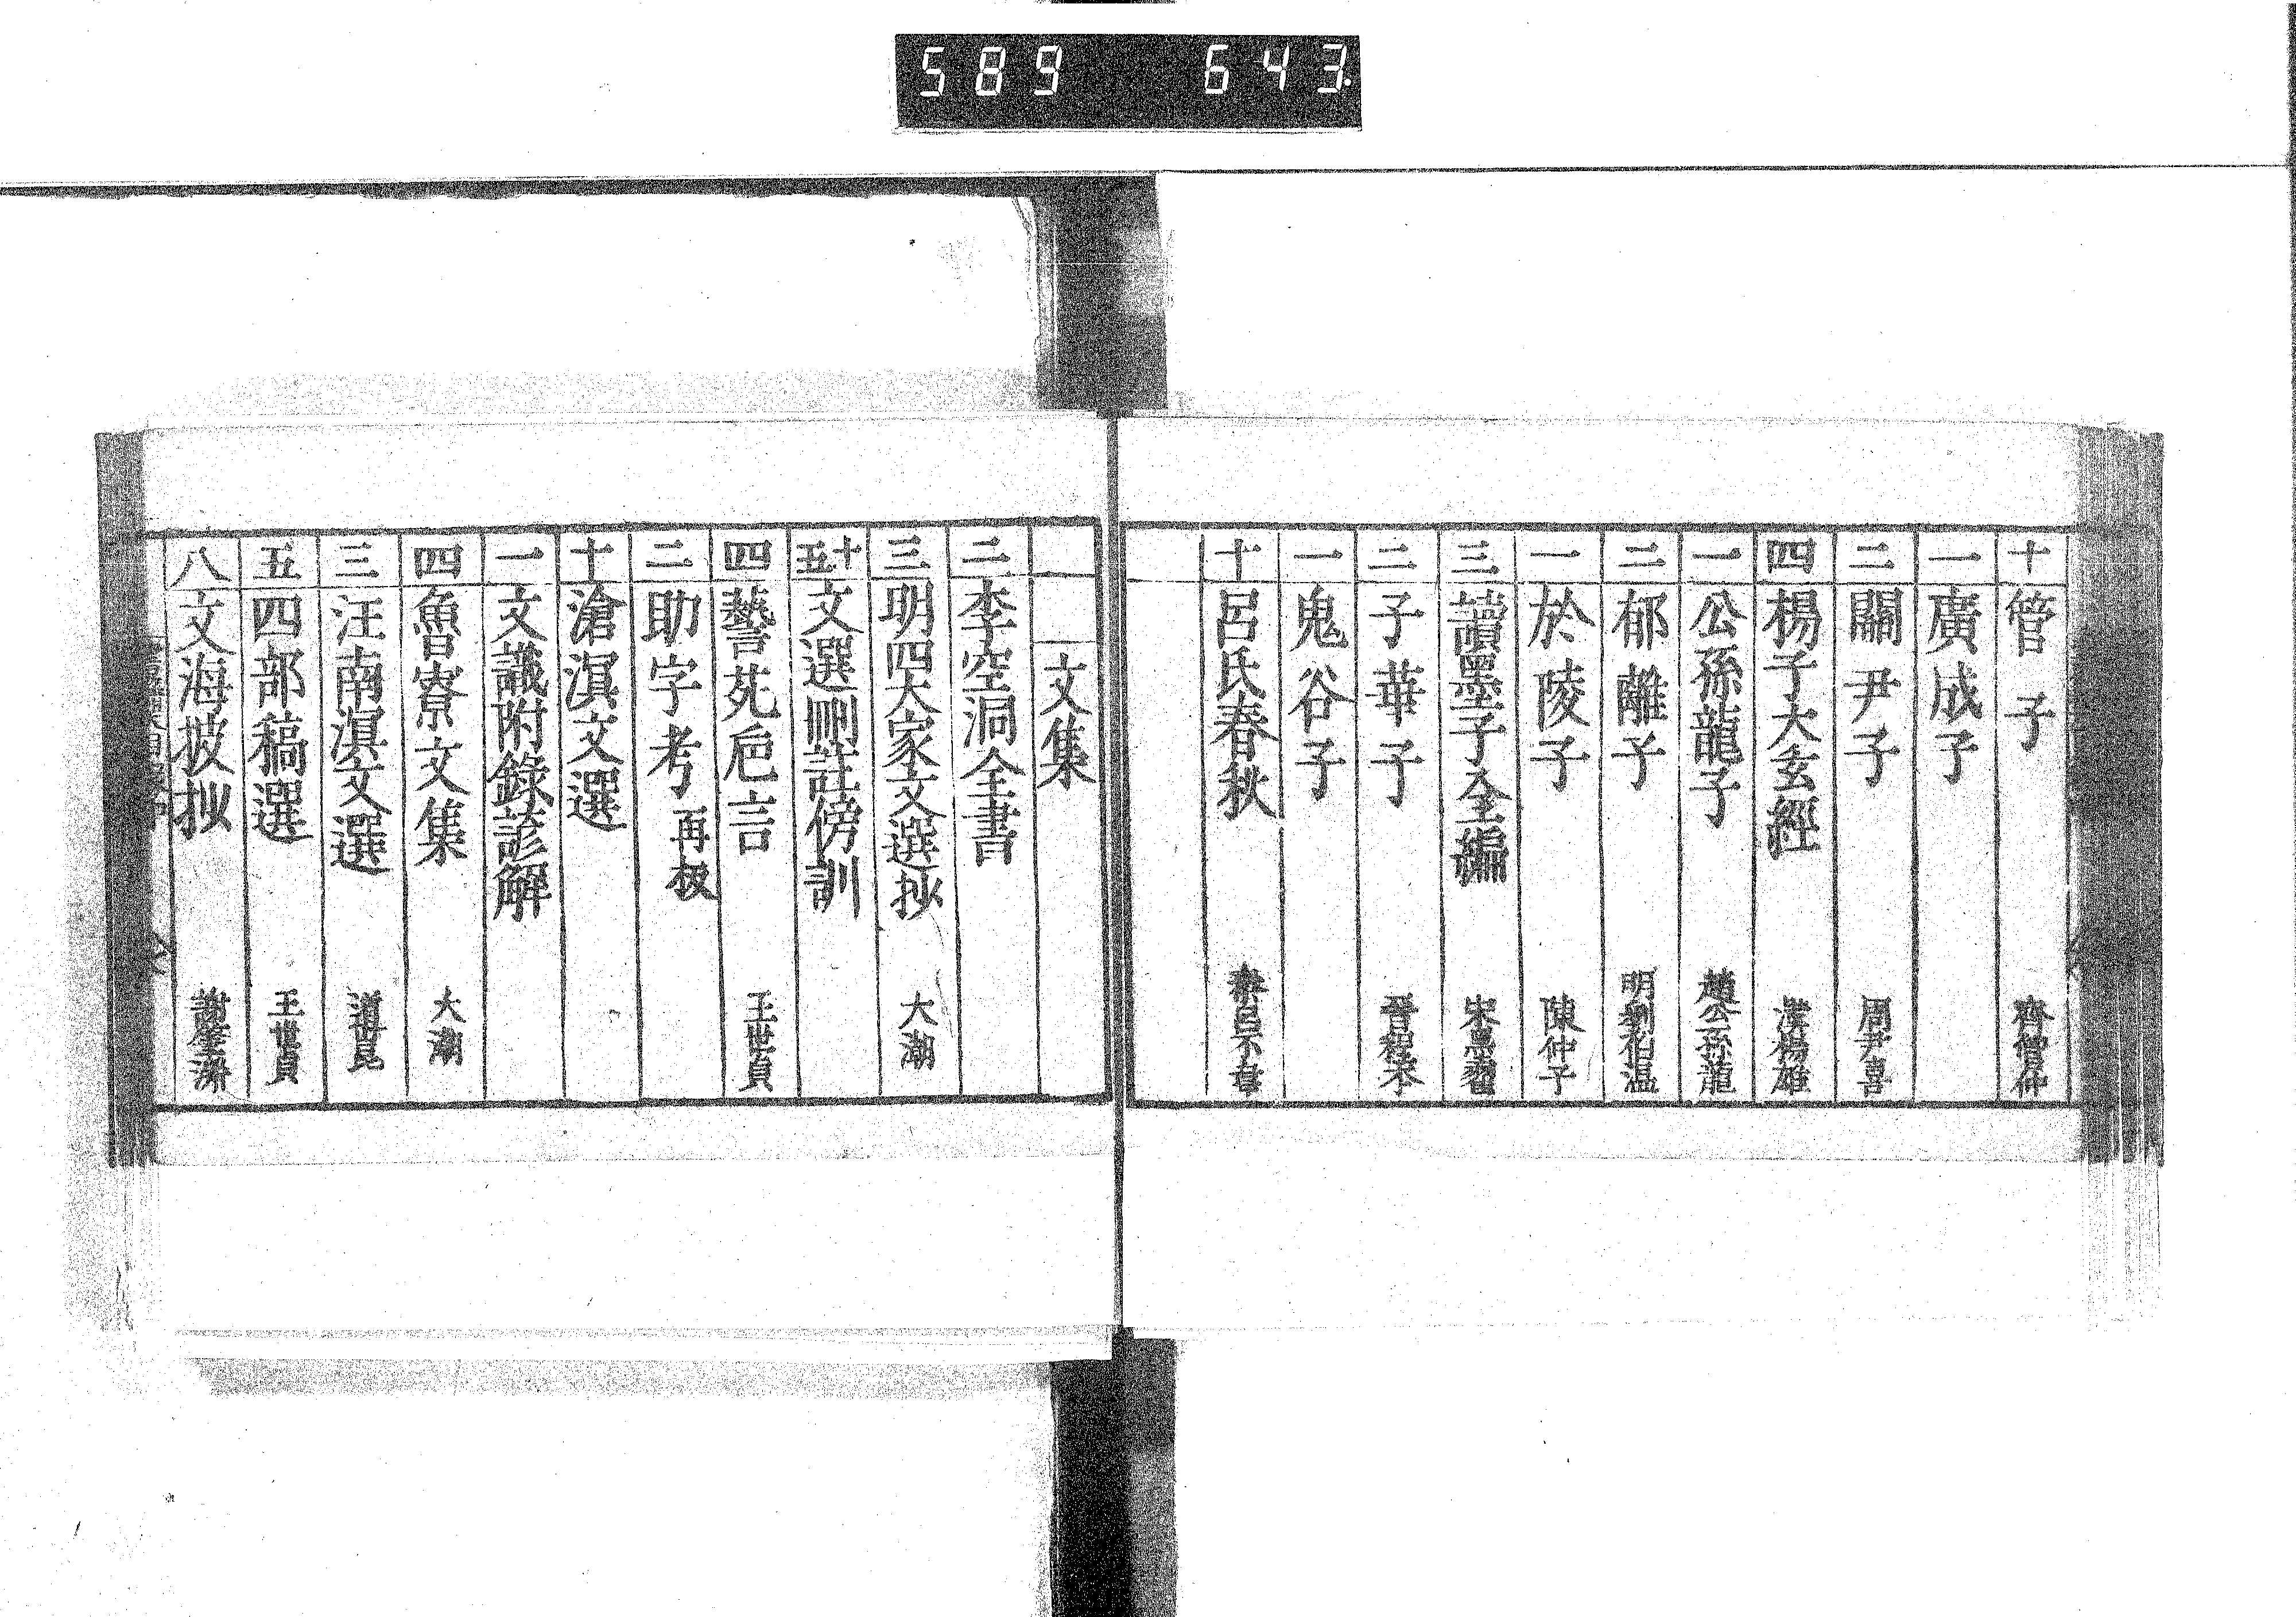 589 643
十 管子 齊管仲
一 廣成子
二 關尹子 周尹喜
四 楊子大玄經 漢楊雄
一 公孫龍子 趙公孫龍
二 郁離子 明劉伯温
一 於陵子 陳仲子
三 讀墨子全編 宋墨翟
二 子華子 晉程本
一 鬼谷子
十 呂氏春秋 秦呂不韋
文集
二 李空洞全書
三 明四大家文選抄 大潮
十五 文選刪註傍訓
四 藝苑巵言 王世貞
二 助字考 再板
十 滄溟文選
一 文識附錄諺解
四 魯寮文集 大潮
三 汪南溟文選 道昆
五 四部稿選 王世貞
八 文海披抄 謝肇淛